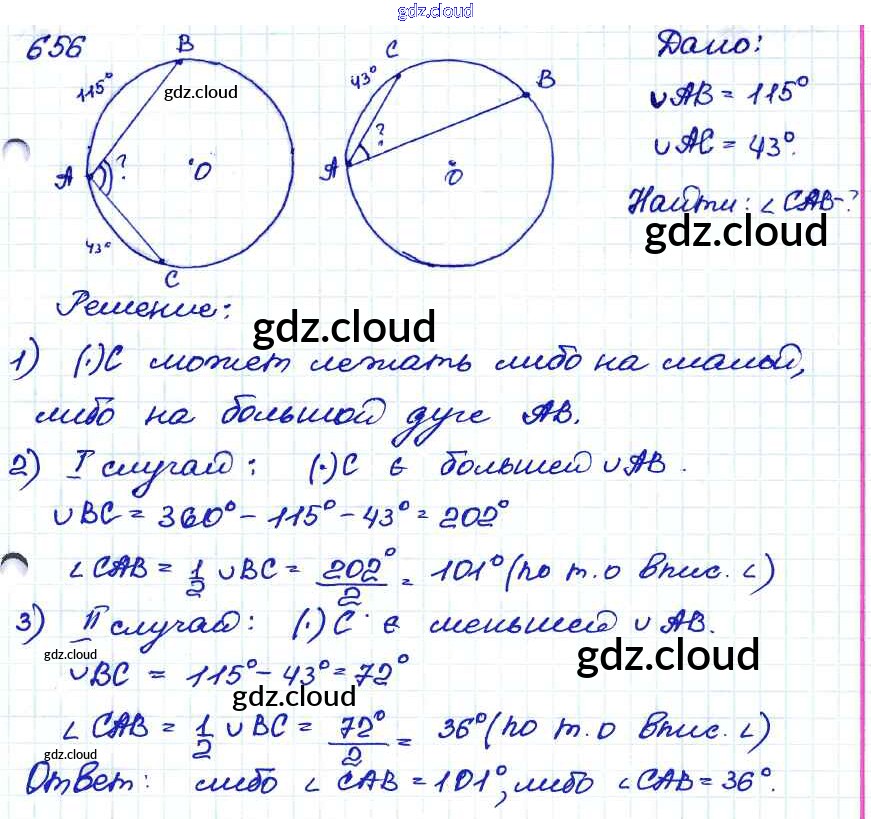 gdz.cloud
gdz.cloud
656
B
115°
gdz.cloud
A
?
O
43°
C
C
43°
B
?
A
O
Дано:
∪AB = 115°
∪AC = 43°.
Найти: ∠CAB-?
gdz.cloud
Решение:
gdz.cloud
1) (·)C может лежать либо на малой,
либо на большой дуге AB.
2) I случай: (·)C ∈ большей ∪AB.
∪BC = 360° - 115° - 43° = 202°
∠CAB = 1/2 ∪BC = 202°/2 = 101° (по т.о впис. ∠)
3) II случай: (·)C ∈ меньшей ∪AB.
gdz.cloud
gdz.cloud
∪BC = 115° - 43° = 72°
gdz.cloud
∠CAB = 1/2 ∪BC = 72°/2 = 36° (по т.о впис. ∠)
gdz.cloud
Ответ: либо ∠CAB = 101°, либо ∠CAB = 36°.